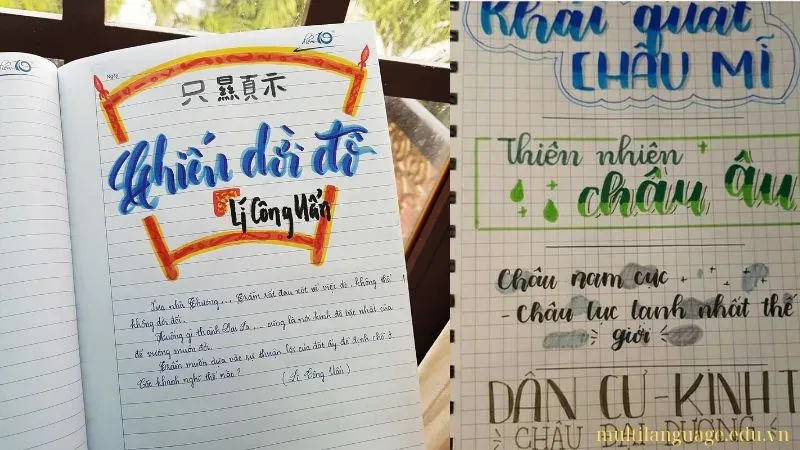 Ngày
只顯頁示
Chiếu dời đô
Lí Công Uẩn
Xưa nhà Thương ... Trẫm rất đau xót về việc đó, không thể
không dời đổi.
Huống gì thành Đại La ... cũng là nơi kinh đô bậc nhất của
đế vương muôn đời.
Trẫm muốn dựa vào sự thuận lợi của đất ấy để định chỗ ở.
Các khanh nghĩ thế nào?
(Lí Công Uẩn)
Khái quát
CHÂU MĨ
Thiên nhiên
châu âu
Châu nam cực
- Châu lục lạnh nhất thế
giới
DÂN CƯ - KINH T
CHÂU ĐẠI DƯƠNG
multilanguage.edu.vn